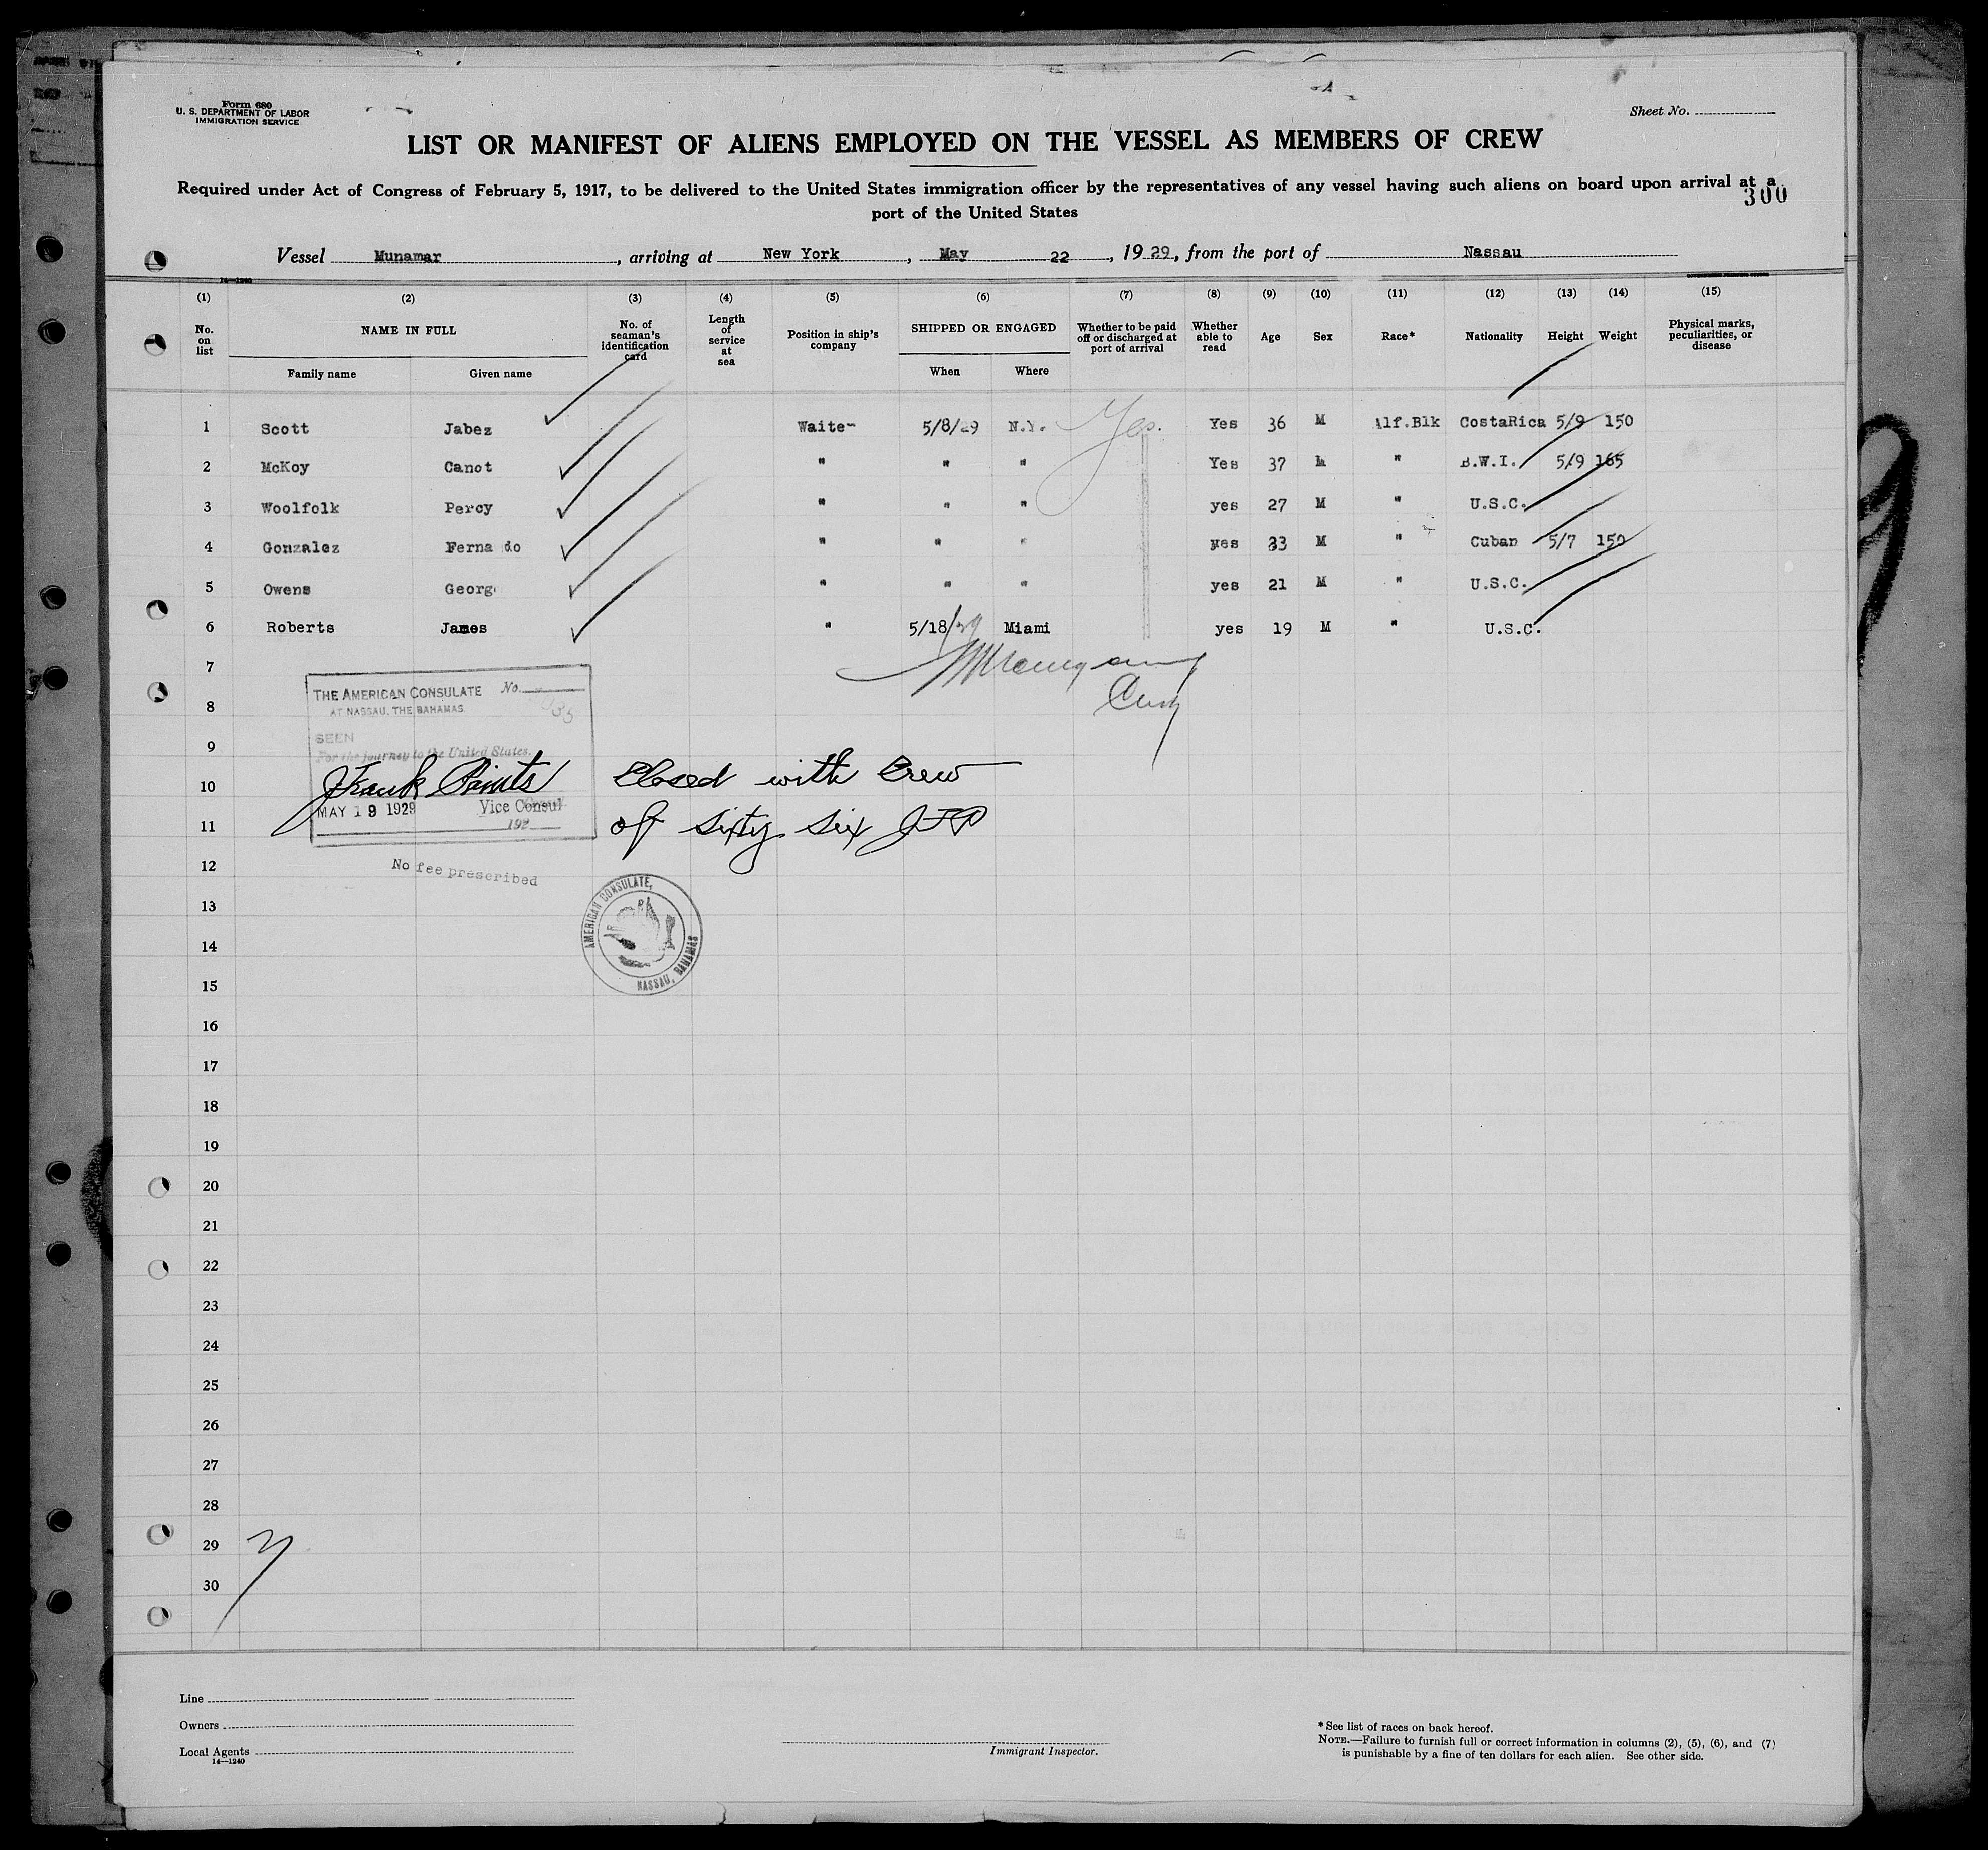 Form 680
U. S. DEPARTMENT OF LABOR
IMMIGRATION SERVICE
Sheet No.
LIST OR MANIFEST OF ALIENS EMPLOYED ON THE VESSEL AS MEMBERS OF CREW
Required under Act of Congress of February 5, 1917, to be delivered to the United States immigration officer by the representatives of any vessel having such aliens on board upon arrival at a
port of the United States
300
Vessel Munamar, arriving at New York, May 22, 1929, from the port of Nassau
14—1240
(1) (2) (3) (4) (5) (6) (7) (8) (9) (10) (11) (12) (13) (14) (15)
No. on list NAME IN FULL No. of seaman's identification card Length of service at sea Position in ship's company SHIPPED OR ENGAGED Whether to be paid off or discharged at port of arrival Whether able to read Age Sex Race* Nationality Height Weight Physical marks, peculiarities, or disease
Family name Given name When Where
1 Scott Jabez Waite 5/8/29 N.Y. Yes. Yes 36 M Alf.Blk CostaRica 5/9 150
2 McKoy Canot " " " Yes 37 M " B.W.I. 5/9 165
3 Woolfolk Percy " " " yes 27 M " U.S.C.
4 Gonzalez Ferna do " " " yes 33 M " Cuban 5/7 150
5 Owens Georg " " " yes 21 M " U.S.C.
6 Roberts James " 5/18/29 Miami yes 19 M " U.S.C.
7
8
9
10
11
12
13
14
15
16
17
18
19
20
21
22
23
24
25
26
27
28
29
30
THE AMERICAN CONSULATE No.
AT NASSAU, THE BAHAMAS.
SEEN
For the journey to the United States.
MAY 19 1929 Vice Consul
192
No fee prescribed
Closed with Crew
of sixty six JFP
AMERICAN CONSULATE,
NASSAU, BAHAMAS
Line
Owners
Local Agents
14—1240
Immigrant Inspector.
*See list of races on back hereof.
NOTE.—Failure to furnish full or correct information in columns (2), (5), (6), and (7)
is punishable by a fine of ten dollars for each alien. See other side.